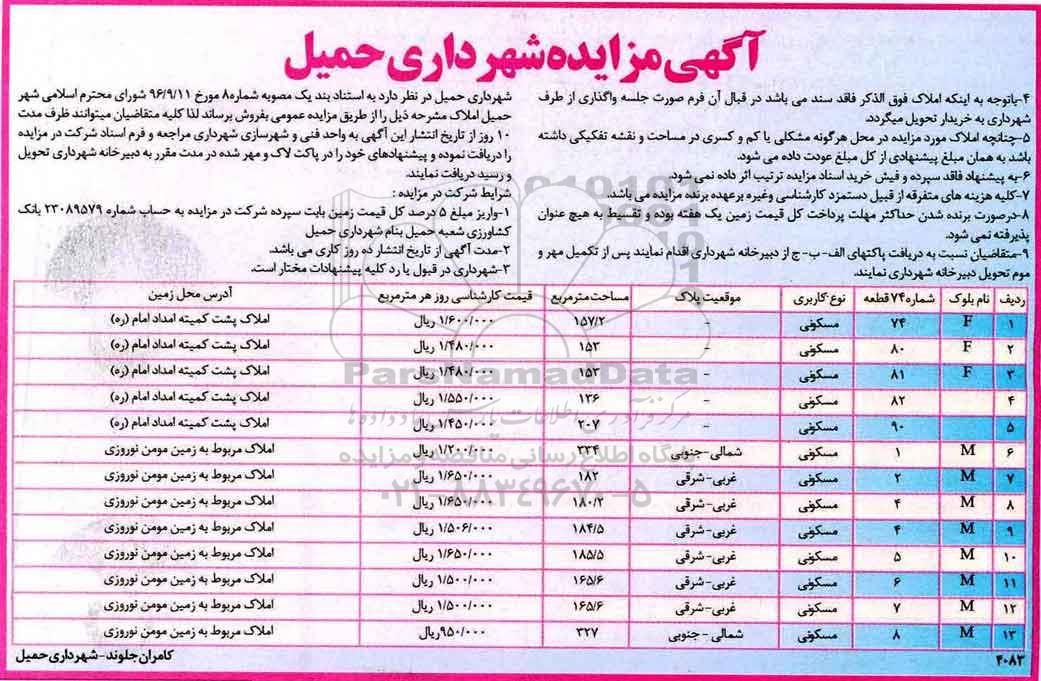 آگهی مزایده شهرداری حمیل
شهرداری حمیل در نظر دارد به استناد بند یک مصوبه شماره ۸ مورخ ۹۶/۹/۱۱ شورای محترم اسلامی شهر
حمیل املاک مشرحه ذیل را از طریق مزایده عمومی بفروش برساند لذا کلیه متقاضیان میتوانند ظرف مدت
۱۰ روز از تاریخ انتشار این آگهی به واحد فنی و شهرسازی شهرداری مراجعه و فرم اسناد شرکت در مزایده
را دریافت نموده و پیشنهادهای خود را در پاکت لاک و مهر شده در مدت مقرر به دبیرخانه شهرداری تحویل
و رسید دریافت نمایند.
شرایط شرکت در مزایده :
۱-واریز مبلغ ۵ درصد کل قیمت زمین بابت سپرده شرکت در مزایده به حساب شماره ۲۳۰۸۹۵۷۹ بانک
کشاورزی شعبه حمیل بنام شهرداری حمیل
۲-مدت آگهی از تاریخ انتشار ده روز کاری می باشد.
۳-شهرداری در قبول یا رد کلیه پیشنهادات مختار است.
۴-باتوجه به اینکه املاک فوق الذکر فاقد سند می باشد در قبال آن فرم صورت جلسه واگذاری از طرف
شهرداری به خریدار تحویل میگردد.
۵-چنانچه املاک مورد مزایده در محل هرگونه مشکلی یا کم و کسری در مساحت و نقشه تفکیکی داشته
باشد به همان مبلغ پیشنهادی از کل مبلغ عودت داده می شود.
۶-به پیشنهاد فاقد سپرده و فیش خرید اسناد مزایده ترتیب اثر داده نمی شود.
۷-کلیه هزینه های متفرقه از قبیل دستمزد کارشناسی وغیره برعهده برنده مزایده می باشد.
۸-درصورت برنده شدن حداکثر مهلت پرداخت کل قیمت زمین یک هفته بوده و تقسیط به هیچ عنوان
پذیرفته نمی شود.
۹-متقاضیان نسبت به دریافت پاکتهای الف-ب-ج از دبیرخانه شهرداری اقدام نمایند پس از تکمیل مهر و
موم تحویل دبیرخانه شهرداری نمایند.
ردیف نام بلوک شماره ۷۴ قطعه نوع کاربری موقعیت پلاک مساحت مترمربع قیمت کارشناسی روز هر مترمربع آدرس محل زمین
۱ F ۷۴ مسکونی - ۱۵۷/۲ ۱/۶۰۰/۰۰۰ ریال املاک پشت کمیته امداد امام (ره)
۲ F ۸۰ مسکونی - ۱۵۳ ۱/۴۸۰/۰۰۰ ریال املاک پشت کمیته امداد امام (ره)
۳ F ۸۱ مسکونی - ۱۵۳ ۱/۴۸۰/۰۰۰ ریال املاک پشت کمیته امداد امام (ره)
۴ ۸۲ مسکونی - ۱۳۶ ۱/۵۵۰/۰۰۰ ریال املاک پشت کمیته امداد امام (ره)
۵ ۹۰ مسکونی - ۲۰۷ ۱/۴۵۰/۰۰۰ ریال املاک پشت کمیته امداد امام (ره)
۶ M ۱ مسکونی شمالی-جنوبی ۳۳۴ ۱/۲۰۰/۰۰۰ ریال املاک مربوط به زمین مومن نوروزی
۷ M ۲ مسکونی غربی-شرقی ۱۸۲ ۱/۶۵۰/۰۰۰ ریال املاک مربوط به زمین مومن نوروزی
۸ M ۴ مسکونی غربی-شرقی ۱۸۰/۲ ۱/۶۵۰/۰۰۰ ریال املاک مربوط به زمین مومن نوروزی
۹ M ۴ مسکونی غربی-شرقی ۱۸۴/۵ ۱/۵۰۶/۰۰۰ ریال املاک مربوط به زمین مومن نوروزی
۱۰ M ۵ مسکونی غربی-شرقی ۱۸۵/۵ ۱/۶۵۰/۰۰۰ ریال املاک مربوط به زمین مومن نوروزی
۱۱ M ۶ مسکونی غربی-شرقی ۱۶۵/۶ ۱/۵۰۰/۰۰۰ ریال املاک مربوط به زمین مومن نوروزی
۱۲ M ۷ مسکونی غربی-شرقی ۱۶۵/۶ ۱/۵۰۰/۰۰۰ ریال املاک مربوط به زمین مومن نوروزی
۱۳ M ۸ مسکونی شمالی - جنوبی ۳۲۷ ۹۵۰/۰۰۰ریال املاک مربوط به زمین مومن نوروزی
۴۰۸۳ کامران جلوند-شهرداری حمیل
ParsNamadData